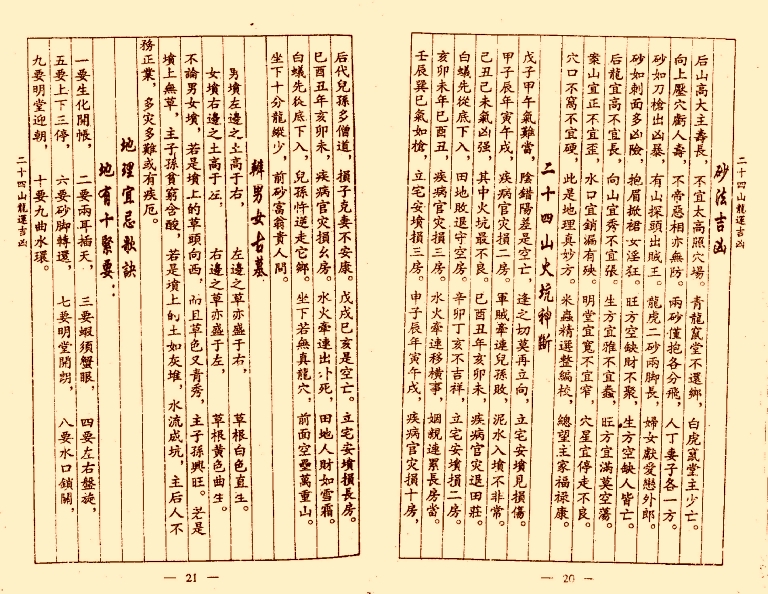 二十四山龍運吉凶
砂法吉凶
后山高大主壽長，不宜太高照穴場。青龍竄堂不還鄉，白虎竄堂主少亡。
向上壓穴虧人壽，不帝惡相亦無防。兩砂僅抱各分飛，人丁妻子各一方。
砂如刀槍出凶暴，有山探頭出賊王。龍虎二砂兩脚長，婦女獻愛戀外郎。
砂如刺面多凶險，抱眉掀裙女淫狂。旺方空缺財不聚，生方空缺人皆亡。
后龍宜高不宜長，向山宜秀不宜張。生方宜雅不宜蠡，旺方宜滿莫空蕩。
案山宜正不宜歪，水口宜銷漏有殃。明堂宜寬不宜窄，穴星宜停走不良。
穴口不寫不宜硬，此是地理真妙方。米蟲精選整編校，總望主家福祿康。
二十四山火坑神斷
戊子甲午氣難當，陰錯陽差是空亡，逢之切莫再立向，立宅安墳見損傷。
甲子辰年寅午戌，疾病官灾損二房。軍賊牽連兒孫敗，泥水入墳不非常。
己丑己未氣凶强，其中火坑最不良。巳酉丑年亥卯未，疾病官灾退田莊。
白蟻先從底下入，田地敗退守空房。辛卯丁亥不吉祥，立宅安墳損二房。
亥卯未年巳酉丑，疾病官灾損三房。水火牽連移橫事，姻親連累長房當。
壬辰巽巳氣如槍，立宅安墳損三房。申子辰年寅午戌，疾病官灾損十房，
— 20 —
后代兒孫多僧道，損子克妻不安康。戊戌巳亥是空亡。立宅安墳損長房。
巳酉丑年亥卯未，疾病官灾損幺房。水火牽連出卟死，田地人財如雪霜。
白蟻先從底下入，兒孫忤逆走它鄉。坐下若無真龍穴，前面空疊萬重山。
坐下十分龍縱少，前砂富翁貴人間。
辯男女古墓
男墳左邊之土高于右，左邊之草亦盛于右，草根白色直生。
女墳右邊之土高于左，右邊之草亦盛于左，草根黃色曲生。
不論男女墳，若是墳上的草頭向西，而且草色又青秀，主子孫興旺。若是
墳上無草，主子孫貧窮含酸，若是墳上的土如灰堆，水流成坑，主后人不
務正業，多灾多難或有疾厄。
地理宜忌歌訣
地有十緊要：
一要生化開帳，二要兩耳插天，三要蝦須蟹眼，四要左右盤旋，
五要上下三停，六要砂脚轉還，七要明堂開朗，八要水口鎖關，
九要明堂迎朝，十要九曲水環。
二十四山龍運吉凶
— 21 —